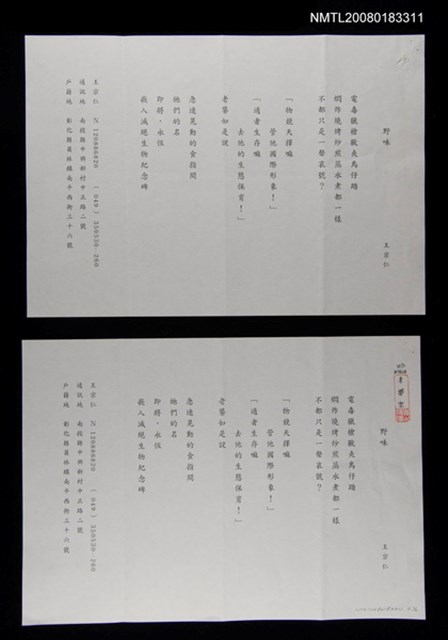 NMTL20080183311
野味
王宗仁
電毒獵槍獸夾鳥仔踏
燜炸燒烤炒煎蒸水煮都一樣
不都只是一聲哀號？
「物競天擇嘛
管他國際形象！」
「適者生存嘛
去他的生態保育！」
老饕如是說
急速晃動的食指間
牠們的名
即將，永恆
嵌入滅絕生物紀念碑
王宗仁 N 120886820 (049) 350530-260
通訊地 南投縣中興新村中正路二號
戶籍地 彰化縣員林鎮南平西街三十六號
野味
王宗仁
電毒獵槍獸夾鳥仔踏
燜炸燒烤炒煎蒸水煮都一樣
不都只是一聲哀號？
「物競天擇嘛
管他國際形象！」
「適者生存嘛
去他的生態保育！」
老饕如是說
急速晃動的食指間
牠們的名
即將，永恆
嵌入滅絕生物紀念碑
王宗仁 N 120886820 (049) 350530-260
通訊地 南投縣中興新村中正路二號
戶籍地 彰化縣員林鎮南平西街三十六號